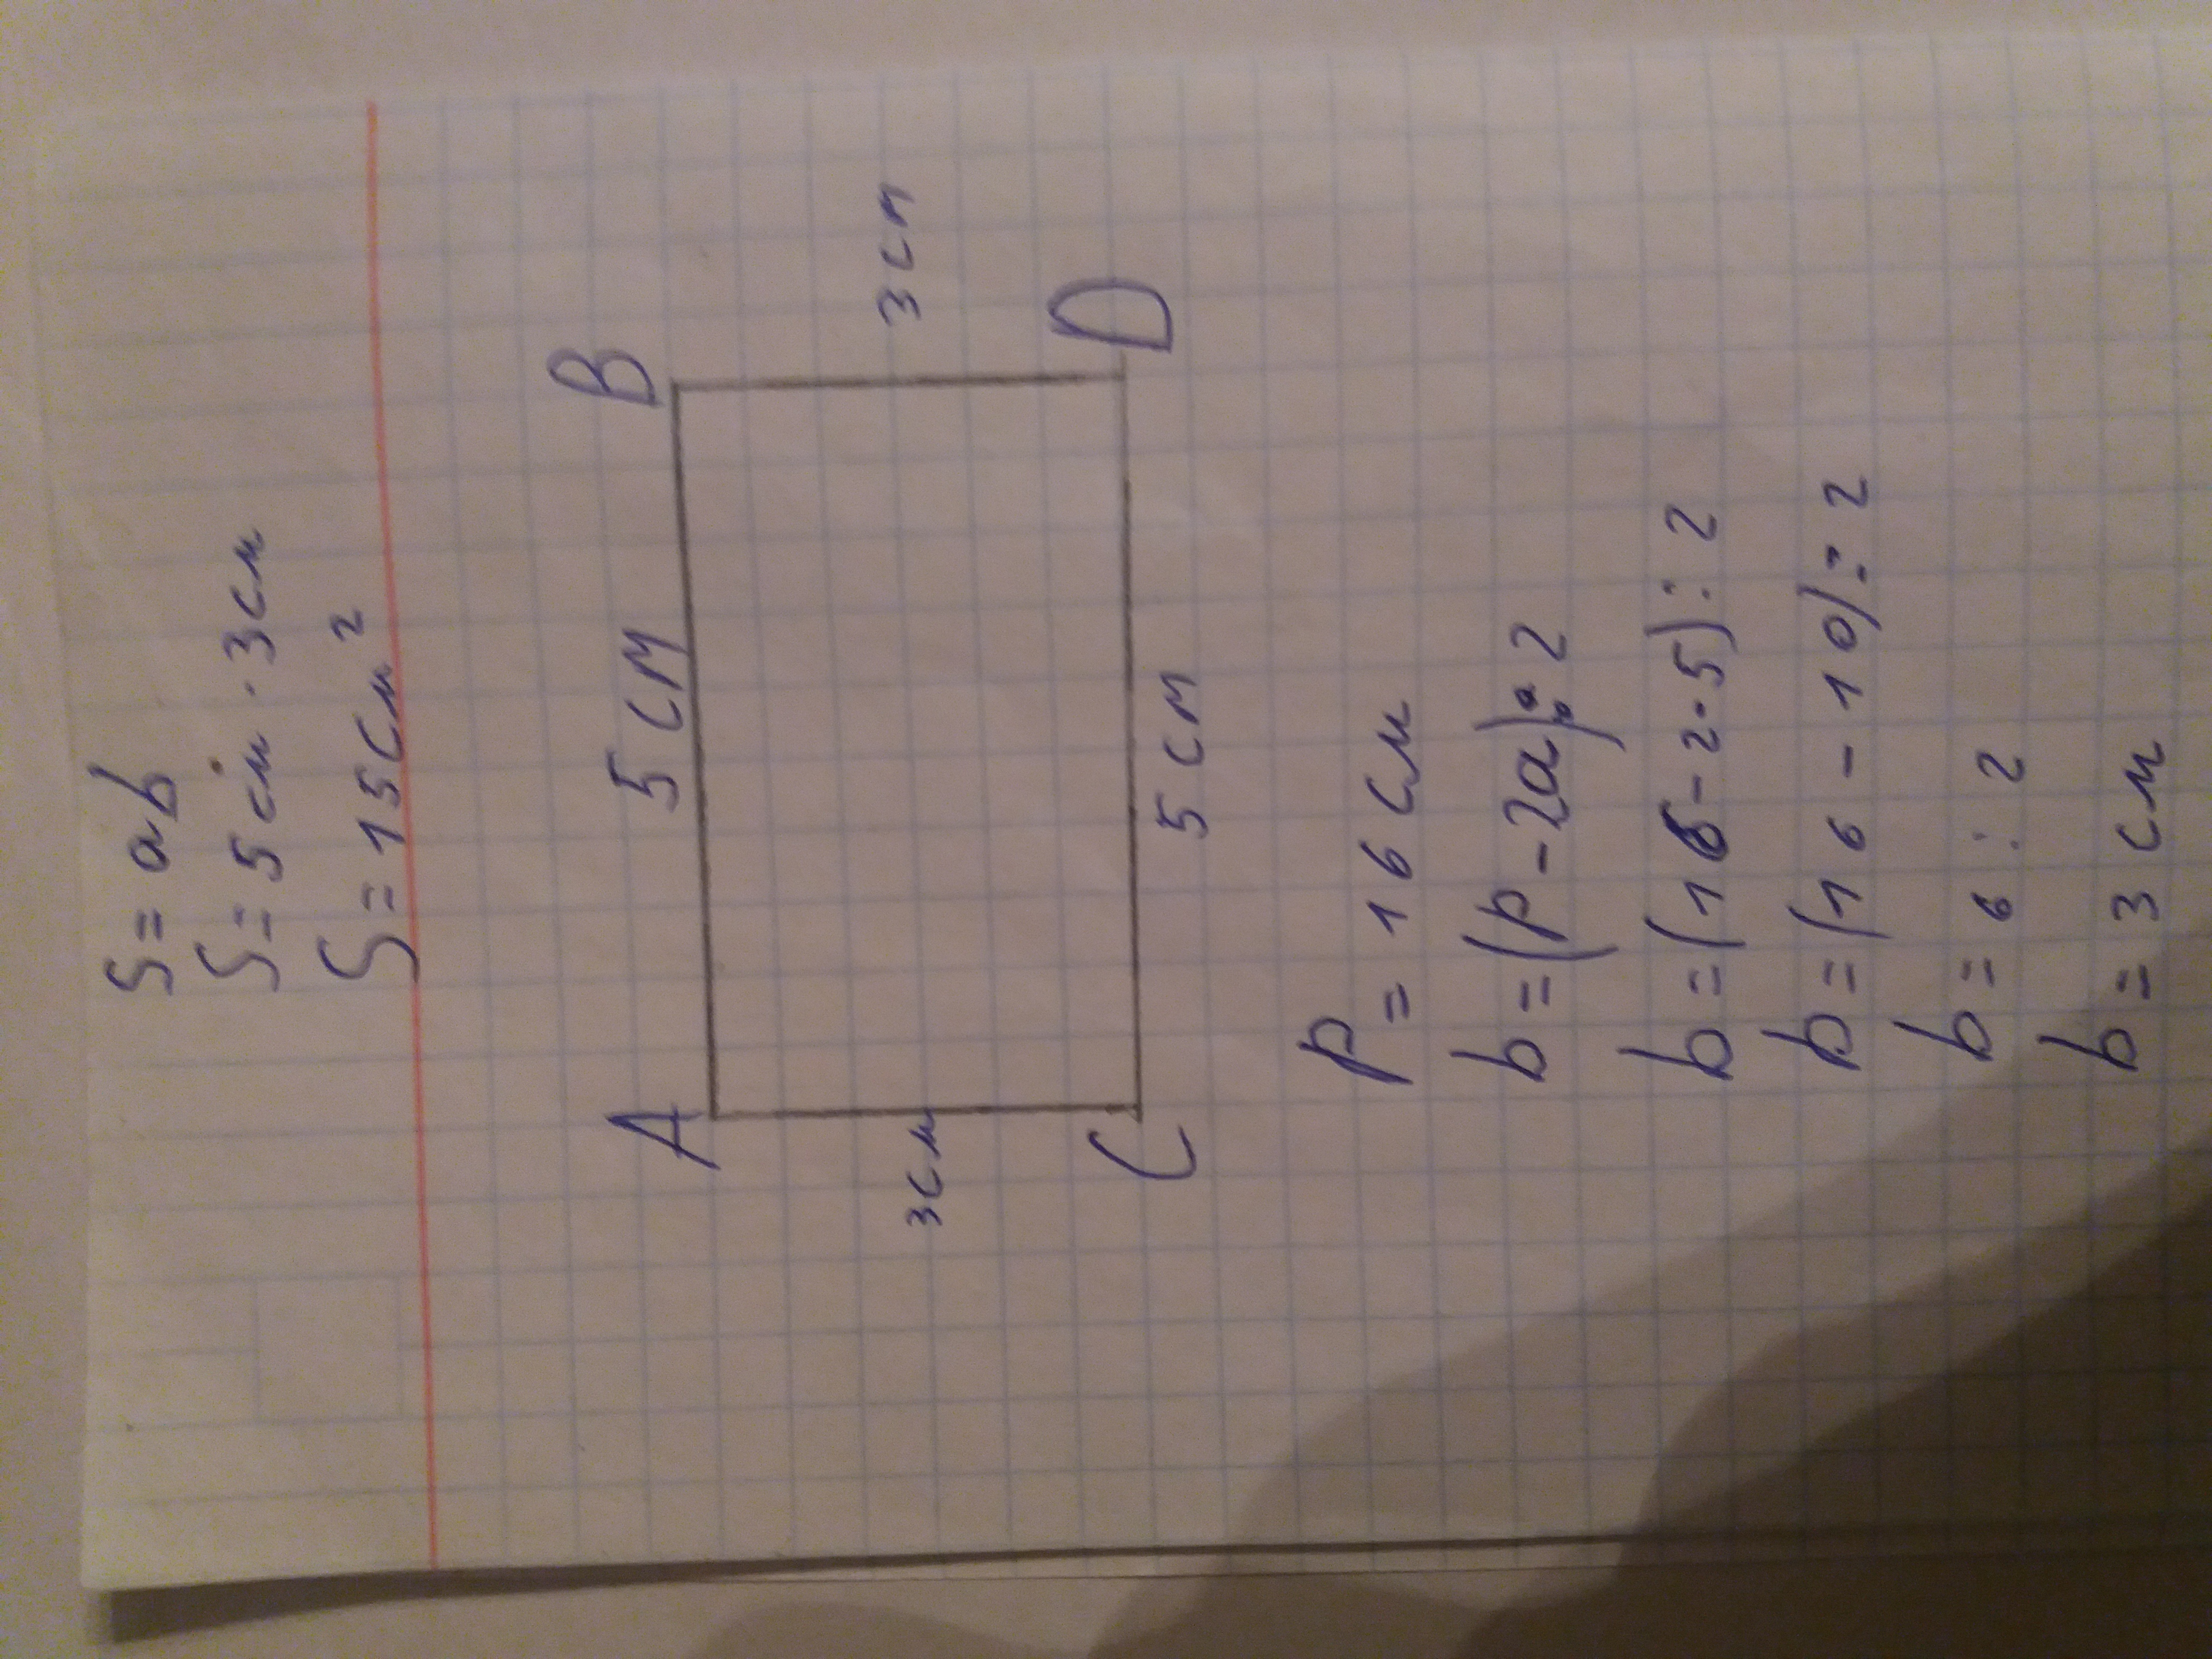 S = ab
S = 5 см · 3 см
S = 15 см²
A
B
5 см
3 см
3 см
C
D
5 см
P = 16 см
b = (P - 2a) : 2
b = (16 - 2 · 5) : 2
b = (16 - 10) : 2
b = 6 : 2
b = 3 см